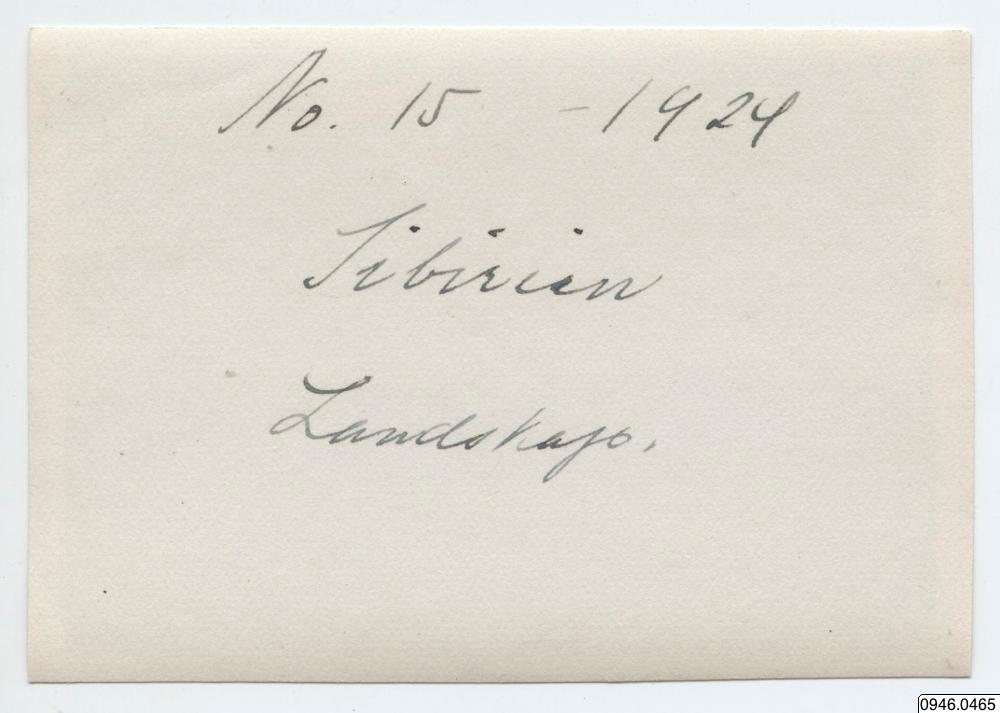 No. 15 - 1924
Sibirien
Landskap.
0946.0465